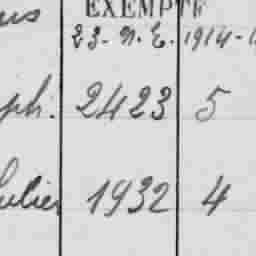 us EXEMPTE
23. N. E. 1914-1
ph. 2423 5
ulier 1932 4